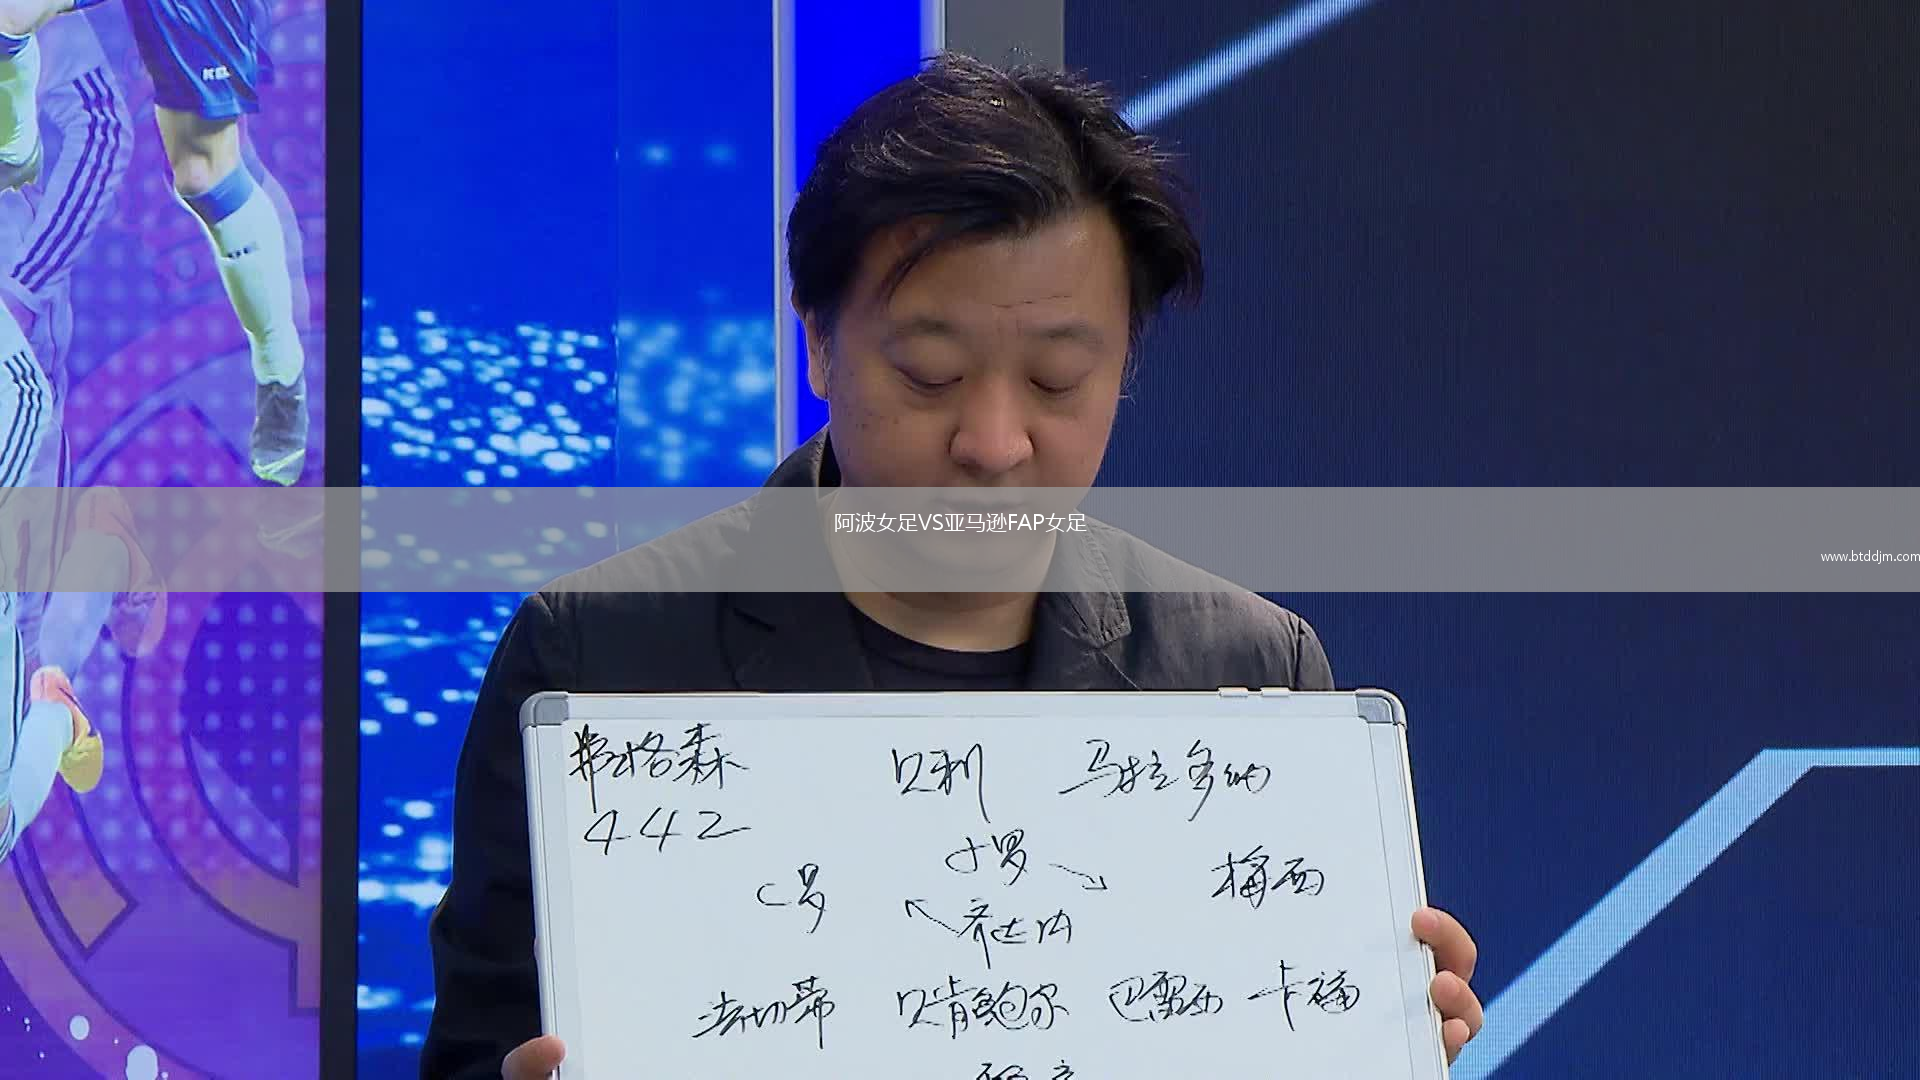 阿波女足VS亚马逊FAP女足
www.btddjm.com
弗格森 贝利 马拉多纳
442
小罗
C罗 梅西
齐达内
法切蒂 贝肯鲍尔 巴雷西 卡福